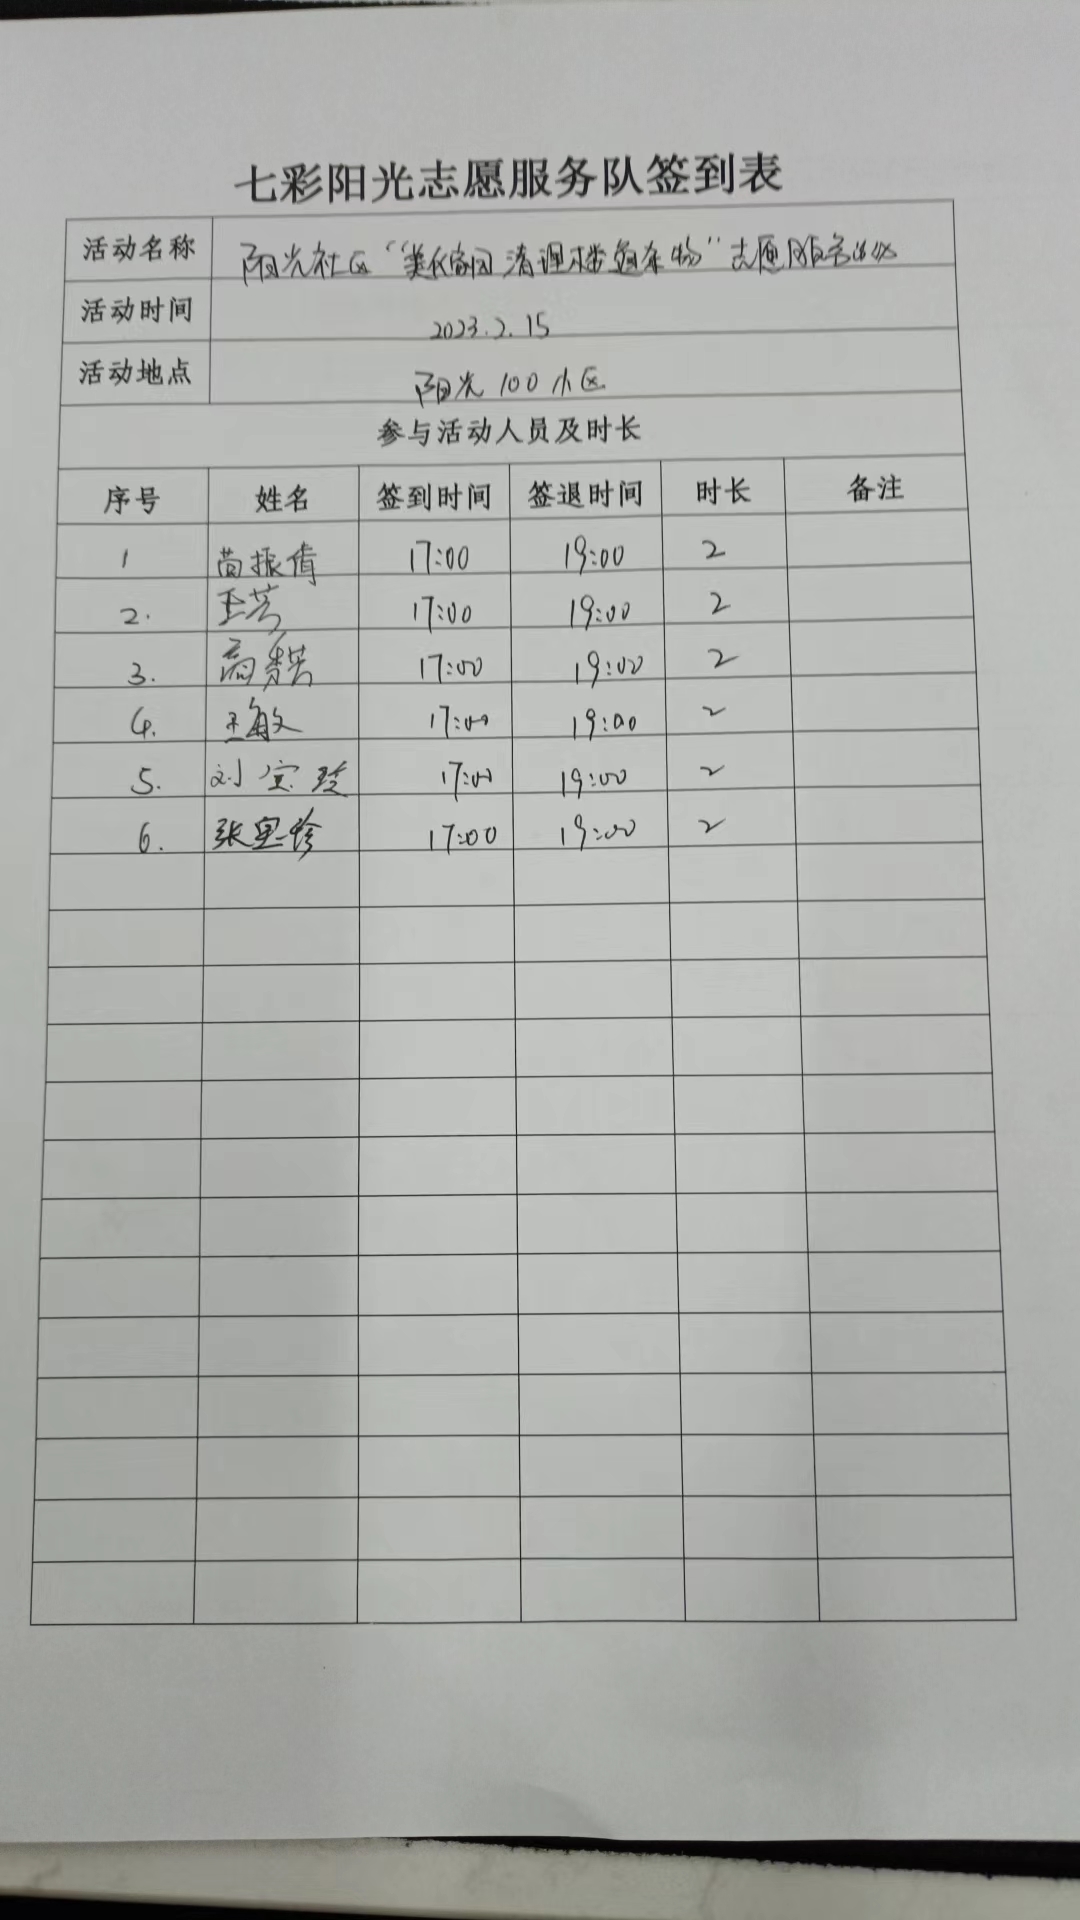 七彩阳光志愿服务队签到表
活动名称 阳光社区“美化家园 清理楼道杂物”志愿服务活动
活动时间 2023.2.15
活动地点 阳光100小区
参与活动人员及时长
序号 姓名 签到时间 签退时间 时长 备注
1 17:00 19:00 2
2. 王芳 17:00 19:00 2
3. 高 17:00 19:00 2
4. 王敏 17:00 19:00 2
5. 刘宝玲 17:00 19:00 2
6. 张 17:00 19:00 2